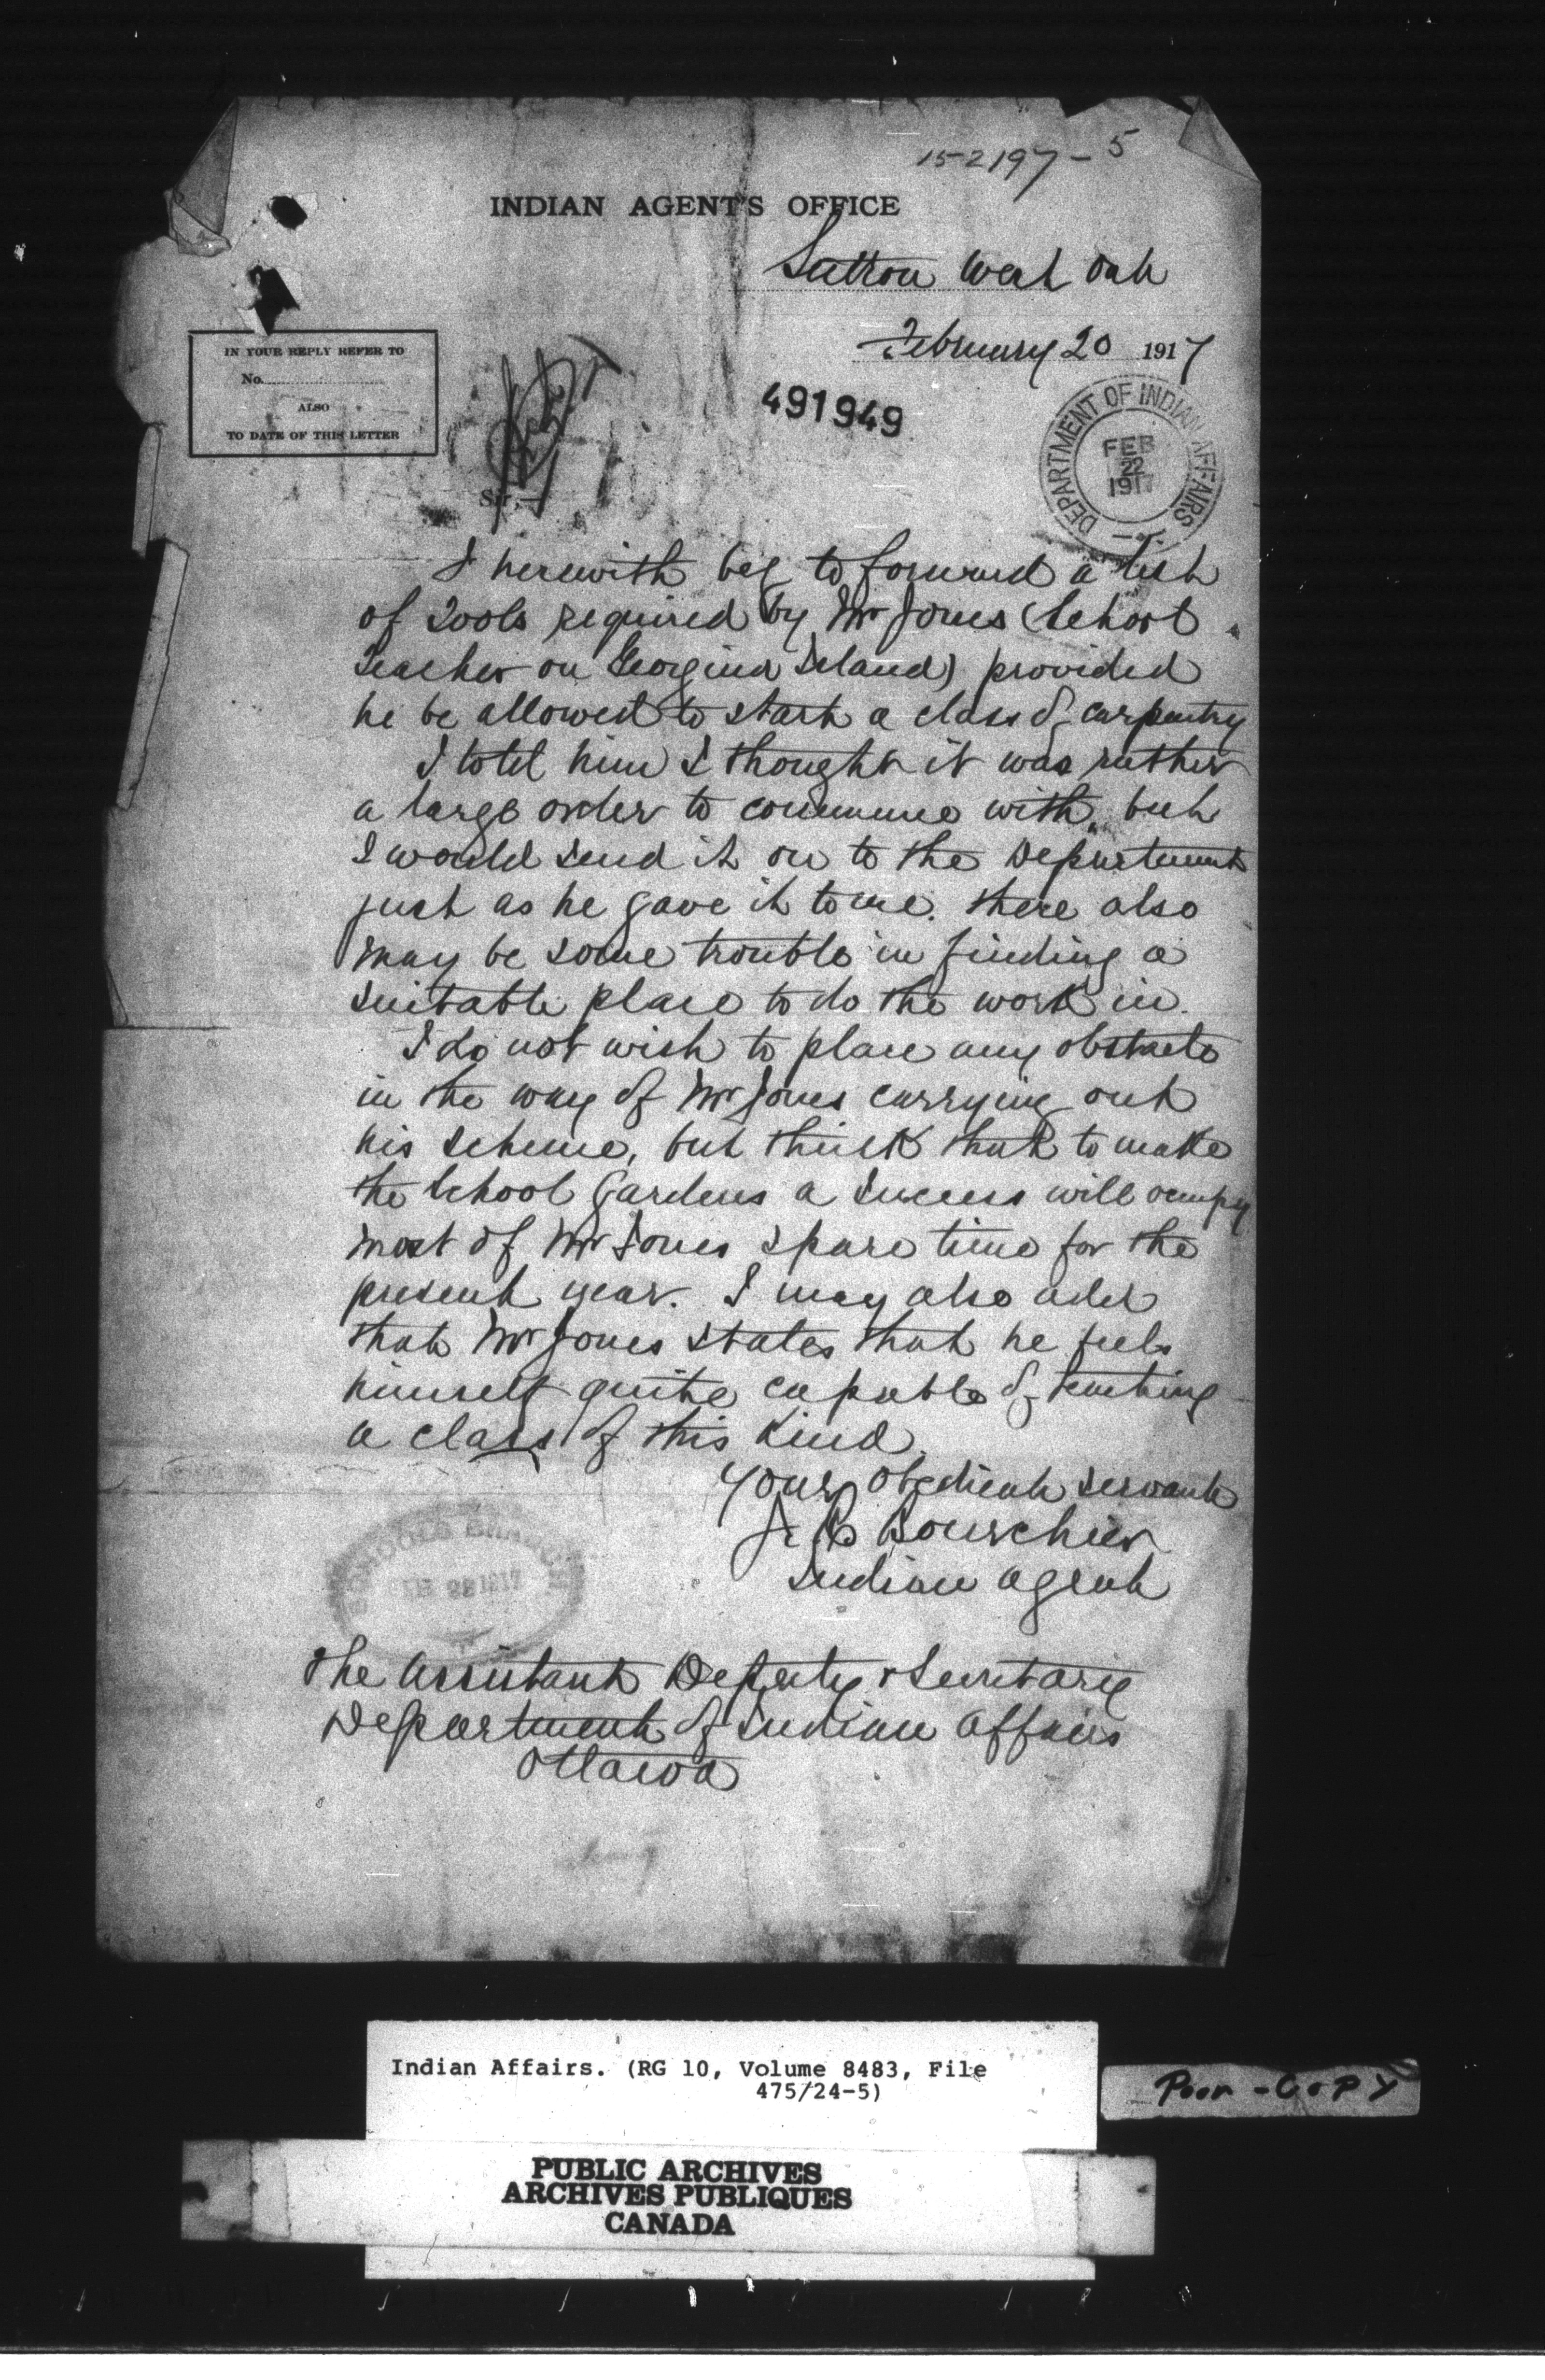 152197-5
INDIAN AGENT'S OFFICE
Sutton West Ont
February 20 1917
IN YOUR REPLY REFER TO
No.
ALSO
TO DATE OF THIS LETTER
491949
DEPARTMENT OF INDIAN AFFAIRS
FEB
22
1917
Sir,—
I herewith beg to forward a list
of Tools required by Mr Jones (School
Teacher on Georgina Island) provided
he be allowed to start a class of carpentry
I told him I thought it was rather
a large order to commence with, but
I would send it on to the Department
just as he gave it to me. there also
may be some trouble in finding a
suitable place to do the work in.
I do not wish to place any obstacle
in the way of Mr Jones carrying out
his scheme, but think that to make
the School Gardens a success will occupy
most of Mr Jones spare time for the
present year. I may also add
that Mr Jones states that he feels
himself quite capable of teaching
a class of this kind.
Your obedient servant
J R Bourchier
Indian Agent
SCHOOLS BRANCH
FEB 28 1917
The Assistant Deputy & Secretary
Department of Indian Affairs
Ottawa
Indian Affairs. (RG 10, Volume 8483, File
475/24-5)
Poor - COPY
PUBLIC ARCHIVES
ARCHIVES PUBLIQUES
CANADA